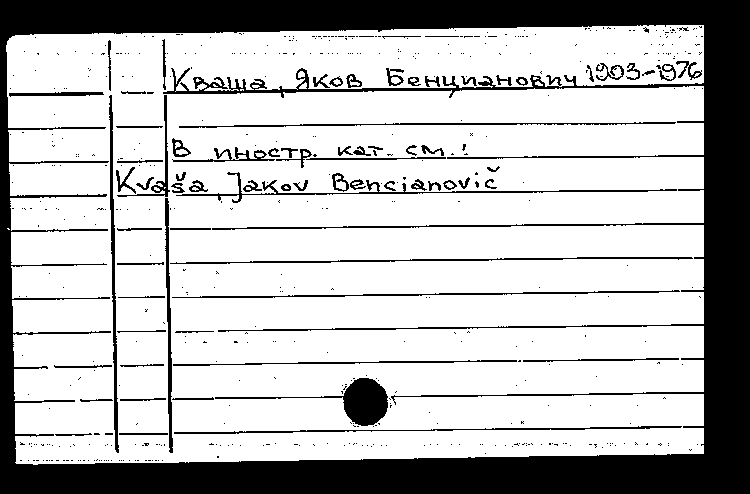 Кваша, Яков Бенцианович 1903-1976
В иностр. кат. см.:
Kvaša, Jakov Bencianovič